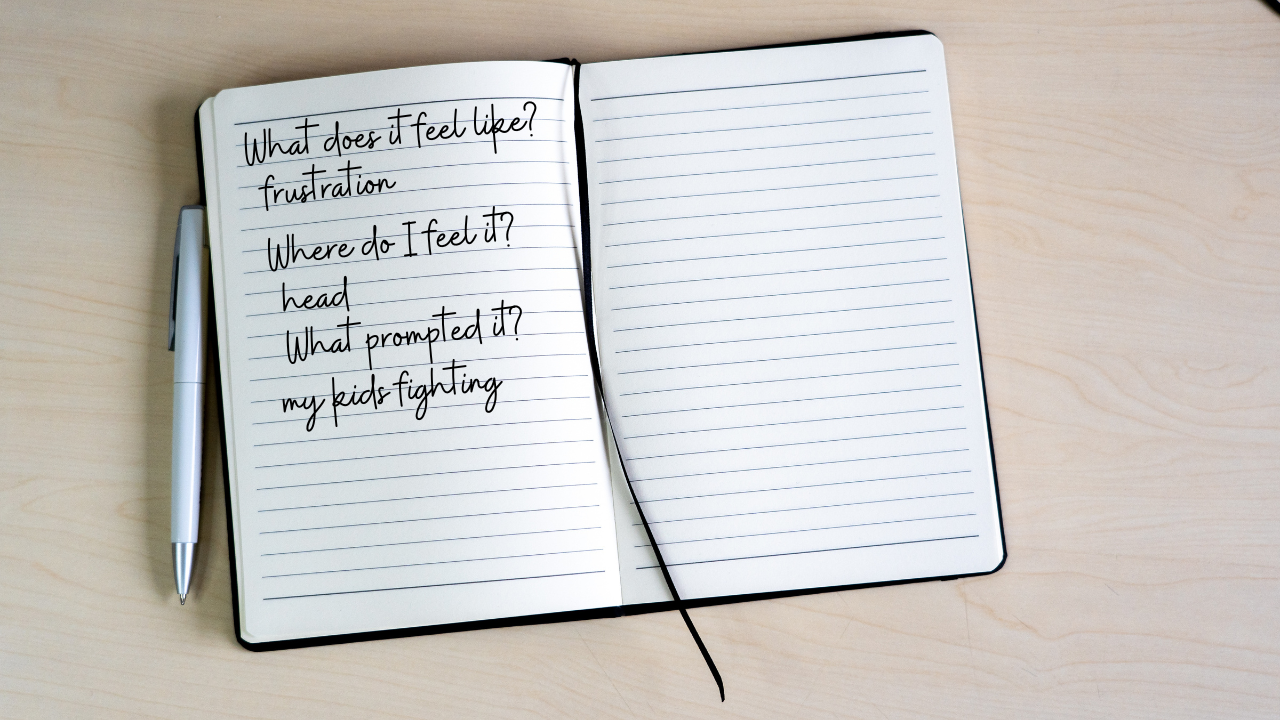 What does it feel like?
frustration
Where do I feel it?
head
What prompted it?
my kids fighting